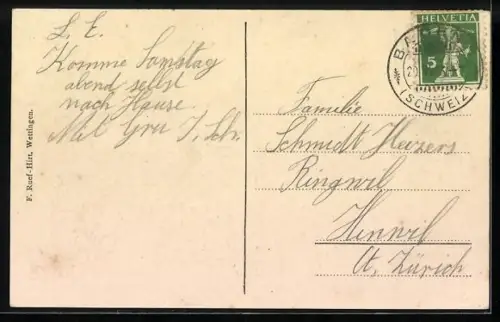 L. E.
Komme Samstag
abend selbst
nach Hause
Mit Gru J. Sch.
F. Ruef-Hirt, Wettingen.
HELVETIA
5
BA
(SCHWEIZ)
Familie
Schmidt Heizers
Ringwil
Hinwil
Ct. Zürich